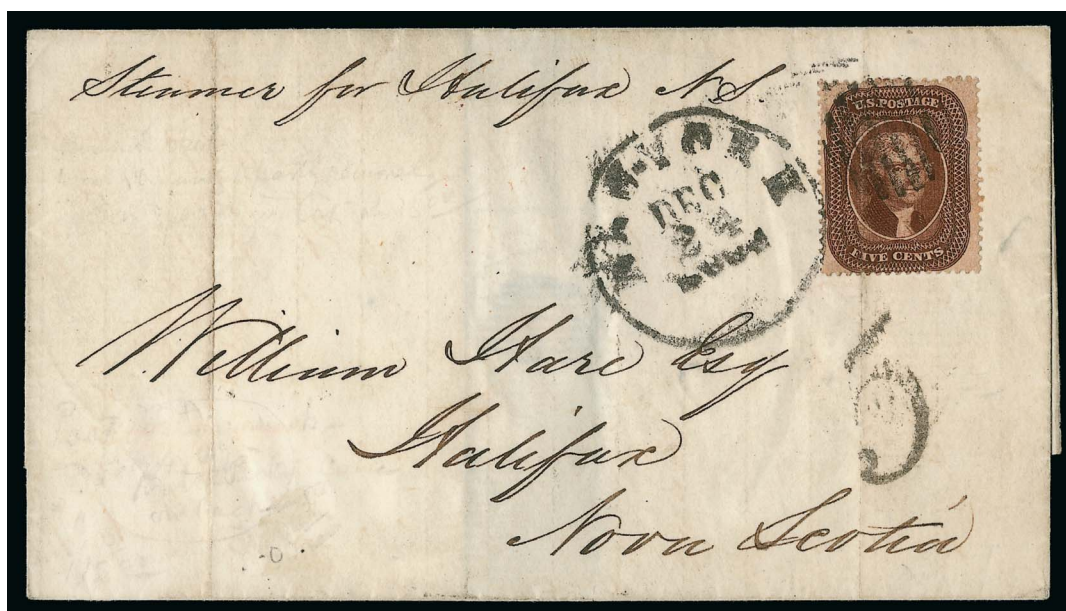 Steamer for Halifax NS
U.S. POSTAGE
FIVE CENTS
NEW-YORK
DEC
24
William Hare Esq
Halifax
Nova Scotia
5